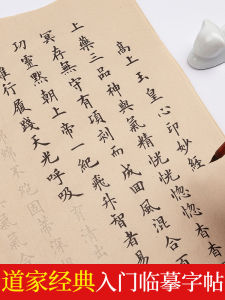 高上玉皇心印妙經
上藥三品神與氣精恍恍惚惚杳杳
冥存無守有頃刻而成回風混合百
功靈默朝上帝一紀飛升智者易
難行履踐天光呼吸
道家经典入门临摹字帖